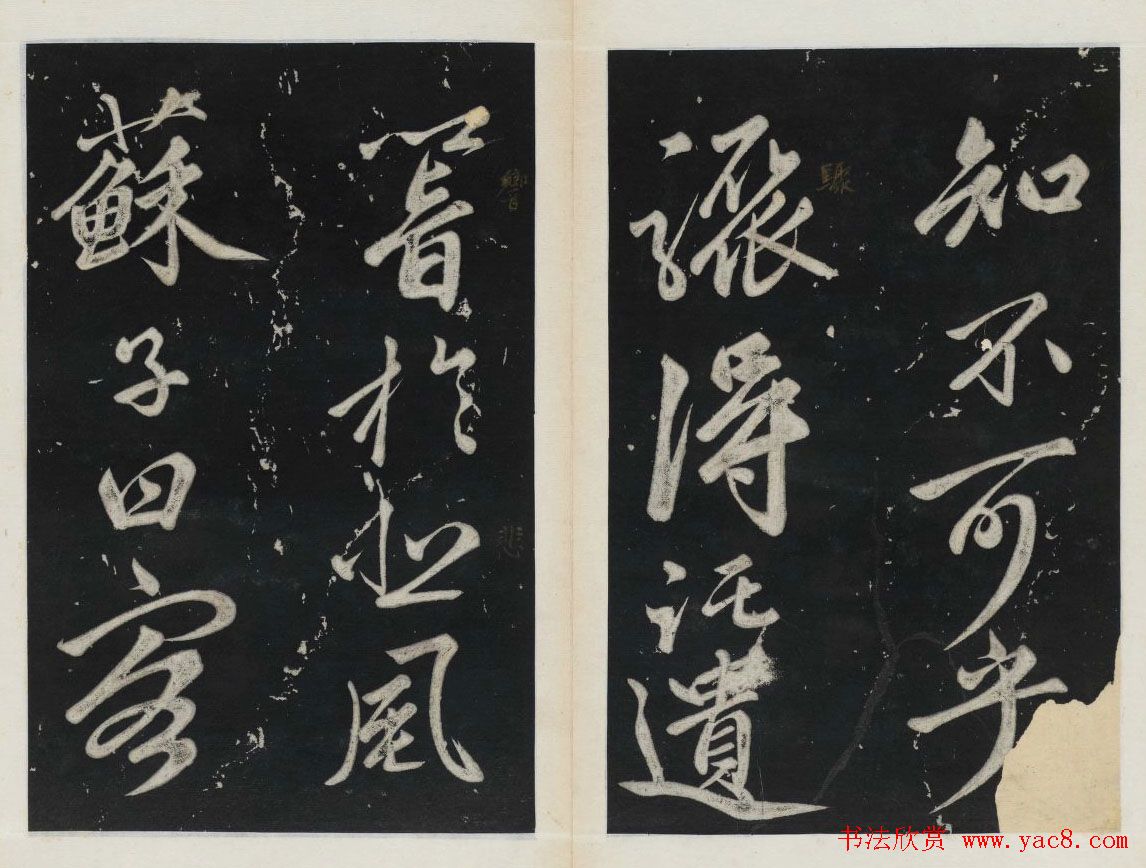 知不可乎
驟
驟得託遺
響
悲
響於悲風
蘇子曰客
书法欣赏 www.yac8.com